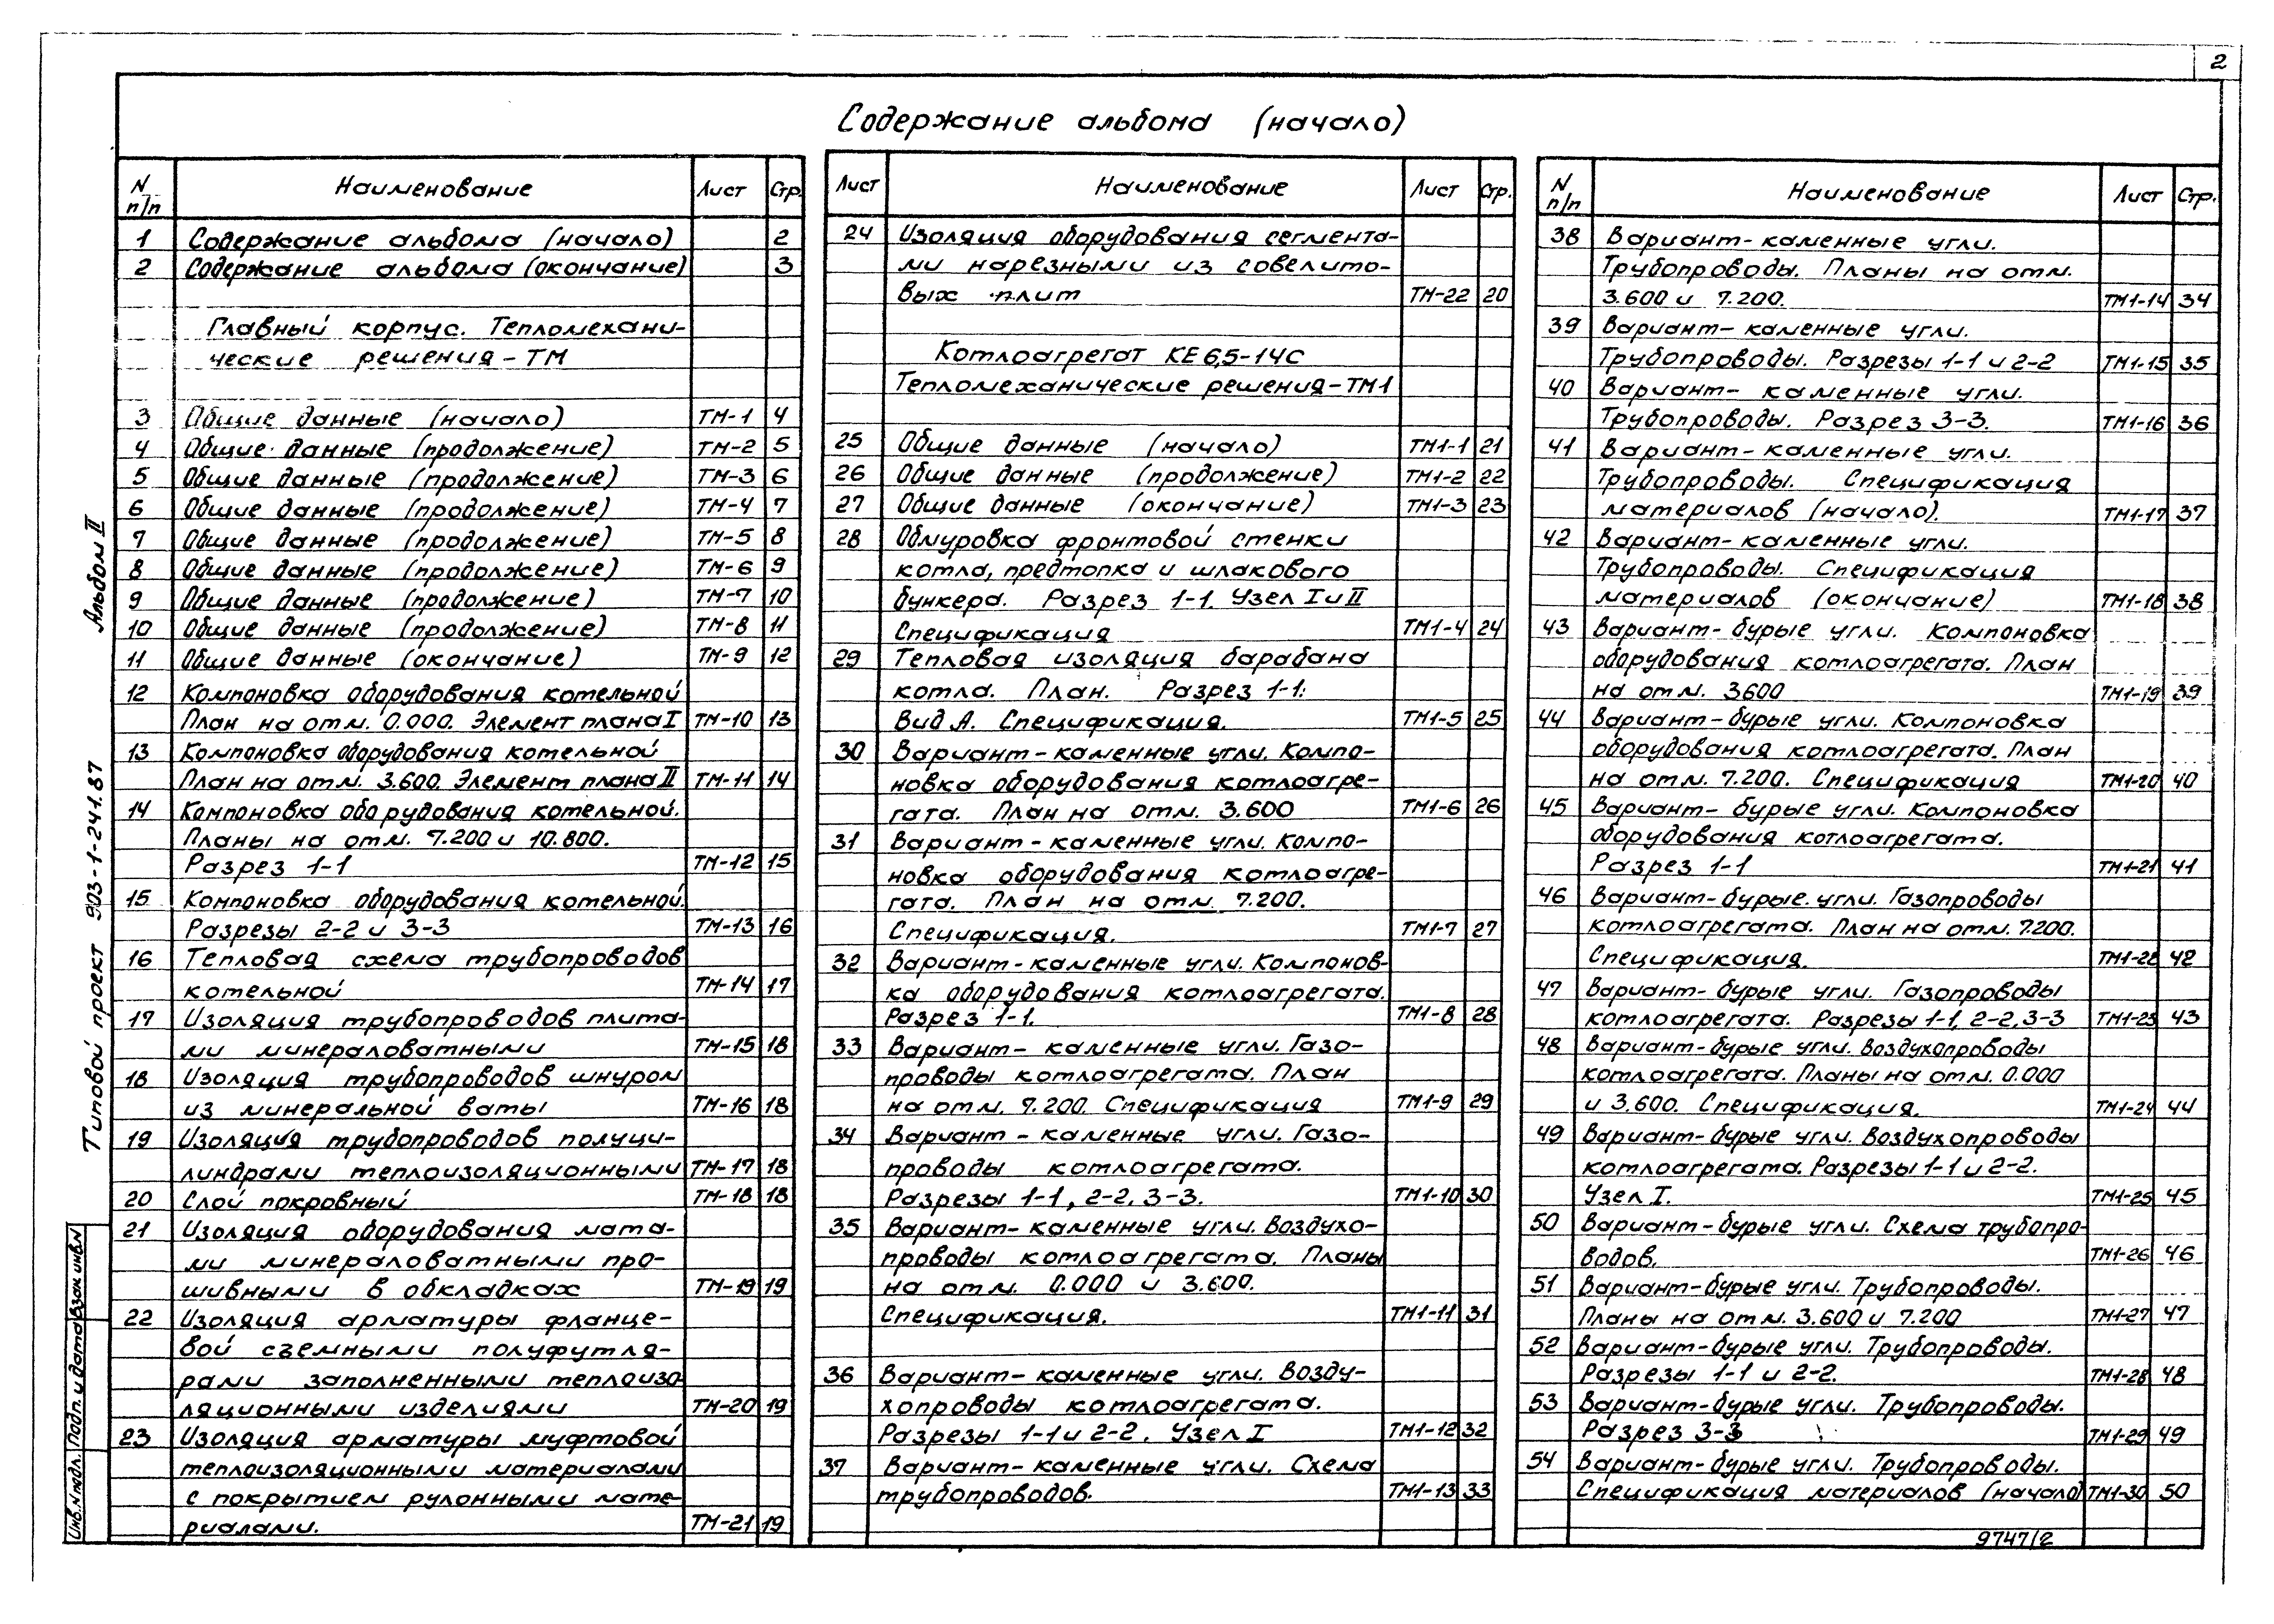 2
Содержание альбома (начало)
N п/п Наименование Лист Стр.
1 Содержание альбома (начало) 2
2 Содержание альбома (окончание) 3
Главный корпус. Тепломехани-
ческие решения-ТМ
3 Общие данные (начало) ТМ-1 4
4 Общие данные (продолжение) ТМ-2 5
5 Общие данные (продолжение) ТМ-3 6
6 Общие данные (продолжение) ТМ-4 7
7 Общие данные (продолжение) ТМ-5 8
8 Общие данные (продолжение) ТМ-6 9
9 Общие данные (продолжение) ТМ-7 10
10 Общие данные (продолжение) ТМ-8 11
11 Общие данные (окончание) ТМ-9 12
12 Компоновка оборудования котельной
План на отм. 0.000. Элемент плана I ТМ-10 13
13 Компоновка оборудования котельной
План на отм. 3.600. Элемент плана II ТМ-11 14
14 Компоновка оборудования котельной.
Планы на отм. 7.200 и 10.800.
Разрез 1-1 ТМ-12 15
15 Компоновка оборудования котельной.
Разрезы 2-2 и 3-3 ТМ-13 16
16 Тепловая схема трубопроводов
котельной ТМ-14 17
17 Изоляция трубопроводов плита-
ми минераловатными ТМ-15 18
18 Изоляция трубопроводов шнуром
из минеральной ваты ТМ-16 18
19 Изоляция трубопроводов полуци-
линдрами теплоизоляционными ТМ-17 18
20 Слой покровный ТМ-18 18
21 Изоляция оборудования мата-
ми минераловатными про-
шивными в обкладках ТМ-19 19
22 Изоляция арматуры фланце-
вой съемными полуфутля-
рами заполненными теплоизо-
ляционными изделиями ТМ-20 19
23 Изоляция арматуры муфтовой
теплоизоляционными материалами
с покрытием рулонными мате-
риалами. ТМ-21 19
Лист Наименование Лист Стр.
24 Изоляция оборудования сегмента-
ми нарезными из совелито-
вых плит ТМ-22 20
Котлоагрегат КЕ 6,5-14С
Тепломеханические решения-ТМ1
25 Общие данные (начало) ТМ1-1 21
26 Общие данные (продолжение) ТМ1-2 22
27 Общие данные (окончание) ТМ1-3 23
28 Обмуровка фронтовой стенки
котла, предтопка и шлакового
бункера. Разрез 1-1. Узел I и II
Спецификация ТМ1-4 24
29 Тепловая изоляция барабана
котла. План. Разрез 1-1.
Вид А. Спецификация. ТМ1-5 25
30 Вариант-каменные угли. Компо-
новка оборудования котлоагре-
гата. План на отм. 3.600 ТМ1-6 26
31 Вариант-каменные угли. Компо-
новка оборудования котлоагре-
гата. План на отм. 7.200.
Спецификация. ТМ1-7 27
32 Вариант-каменные угли. Компонов-
ка оборудования котлоагрегата.
Разрез 1-1. ТМ1-8 28
33 Вариант- каменные угли. Газо-
проводы котлоагрегата. План
на отм. 7.200. Спецификация ТМ1-9 29
34 Вариант - каменные угли. Газо-
проводы котлоагрегата.
Разрезы 1-1, 2-2, 3-3. ТМ1-10 30
35 Вариант-каменные угли. Воздухо-
проводы котлоагрегата. Планы
на отм. 0.000 и 3.600.
Спецификация. ТМ1-11 31
36 Вариант-каменные угли. Возду-
хопроводы котлоагрегата.
Разрезы 1-1 и 2-2. Узел I ТМ1-12 32
37 Вариант-каменные угли. Схема
трубопроводов. ТМ1-13 33
N п/п Наименование Лист Стр.
38 Вариант-каменные угли.
Трубопроводы. Планы на отм.
3.600 и 7.200. ТМ1-14 34
39 Вариант-каменные угли.
Трубопроводы. Разрезы 1-1 и 2-2 ТМ1-15 35
40 Вариант- каменные угли.
Трубопроводы. Разрез 3-3. ТМ1-16 36
41 Вариант-каменные угли.
Трубопроводы. Спецификация
материалов (начало). ТМ1-17 37
42 Вариант-каменные угли.
Трубопроводы. Спецификация
материалов (окончание) ТМ1-18 38
43 Вариант-бурые угли. Компоновка
оборудования котлоагрегата. План
на отм. 3.600 ТМ1-19 39
44 Вариант-бурые угли. Компоновка
оборудования котлоагрегата. План
на отм. 7.200. Спецификация ТМ1-20 40
45 Вариант- бурые угли. Компоновка
оборудования котлоагрегата.
Разрез 1-1 ТМ1-21 41
46 Вариант-бурые угли. Газопроводы
котлоагрегата. План на отм. 7.200.
Спецификация. ТМ1-22 42
47 Вариант-бурые угли. Газопроводы
котлоагрегата. Разрезы 1-1, 2-2, 3-3 ТМ1-23 43
48 Вариант-бурые угли. Воздухопроводы
котлоагрегата. Планы на отм. 0.000
и 3.600. Спецификация. ТМ1-24 44
49 Вариант-бурые угли. Воздухопроводы
котлоагрегата. Разрезы 1-1 и 2-2.
Узел I. ТМ1-25 45
50 Вариант-бурые угли. Схема трубопро-
водов. ТМ1-26 46
51 Вариант-бурые угли. Трубопроводы.
Планы на отм. 3.600 и 7.200 ТМ1-27 47
52 Вариант-бурые угли. Трубопроводы.
Разрезы 1-1 и 2-2. ТМ1-28 48
53 Вариант-бурые угли. Трубопроводы.
Разрез 3-3 ТМ1-29 49
54 Вариант-бурые угли. Трубопроводы.
Спецификация материалов (начало) ТМ1-30 50
9747/2
Типовой проект 903-1-241.87 Альбом II
Инв.N подл. Подп. и дата Взам инв.N